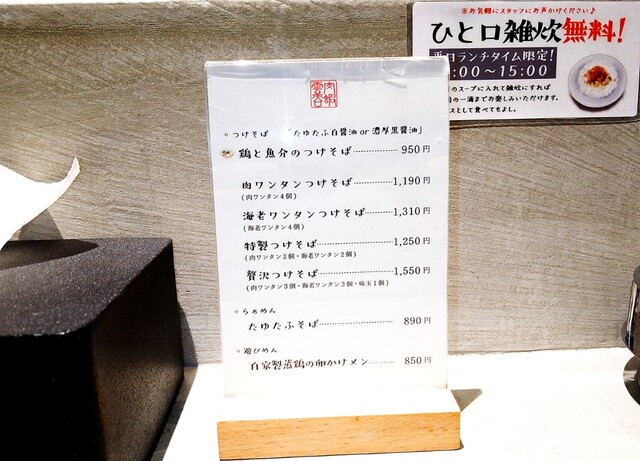 ※お気軽にスタッフにお声かけください♪
ひと口雑炊無料!
平日ランチタイム限定!
:00～15:00
のスープに入れて雑炊にすれば
の一滴までお楽しみいただけます。
スとして食べてもよし。
◦つけそば 「たゆたふ白醤油 or 濃厚黒醤油」
鶏と魚介のつけそば 950円
肉ワンタンつけそば 1,190円
(肉ワンタン4個)
海老ワンタンつけそば 1,310円
(海老ワンタン4個)
特製つけそば 1,250円
(肉ワンタン2個・海老ワンタン2個)
贅沢つけそば 1,550円
(肉ワンタン3個・海老ワンタン3個・味玉1個)
◦らぁめん
たゆたふそば 890円
◦遊びめん
自家製蒸鶏の卵かけメン 850円